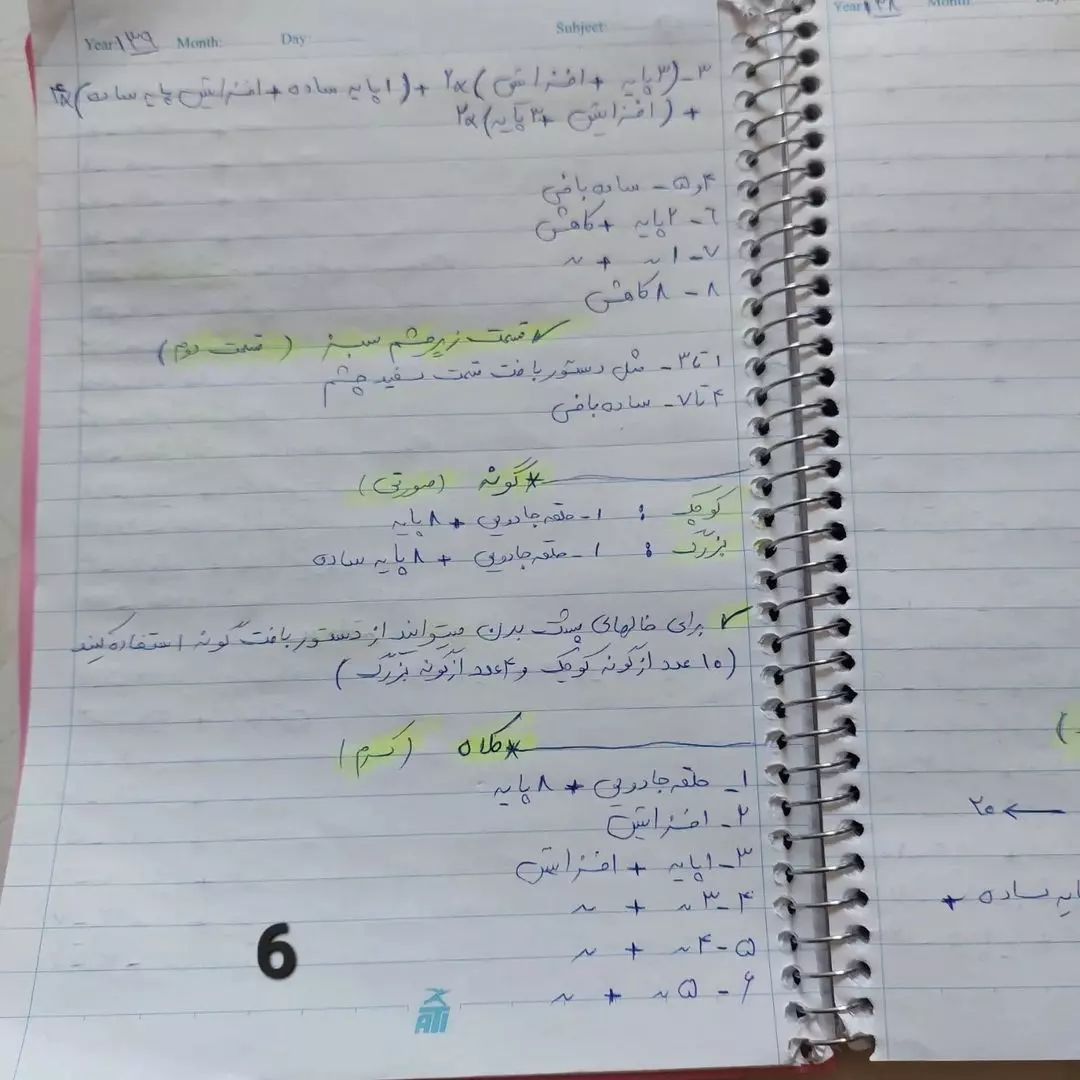 Year: ۱۳۹ Month: Day: Subject:
۳- (۳ پایه + افزایش) ۲× + (۱ پایه ساده + افزایش پایه ساده) ۴×
+ (افزایش + ۳ پایه) ۲×
۴و۵ - ساده بافی
۶- ۲ پایه + کاهش
۷- ۱ ~ + ~
۸ - ۸ کاهش
✓ قسمت زیر چشم سبز (قسمت دوم)
۱ تا ۳- مثل دستور بافت قسمت سفید چشم
۴ تا ۷- ساده بافی
* گونه (صورتی)
کوچک : ۱- حلقه جادویی + ۸ پایه
بزرگ : ۱- حلقه جادویی + ۸ پایه ساده
✓ برای خالهای پشت بدن میتوانید از دستور بافت گونه استفاده کنید
(۱۰ عدد از گونه کوچک و ۴ عدد از گونه بزرگ)
* کلاه (کرم)
۱- حلقه جادویی + ۸ پایه
۲- افزایش
۳- ۱ پایه + افزایش
۴- ۳ ~ + ~
۵- ۴ ~ + ~
۶- ۵ ~ + ~
6
ATI
Year: ۱۳۸ Month:
)
← ۲۰
پایه ساده +